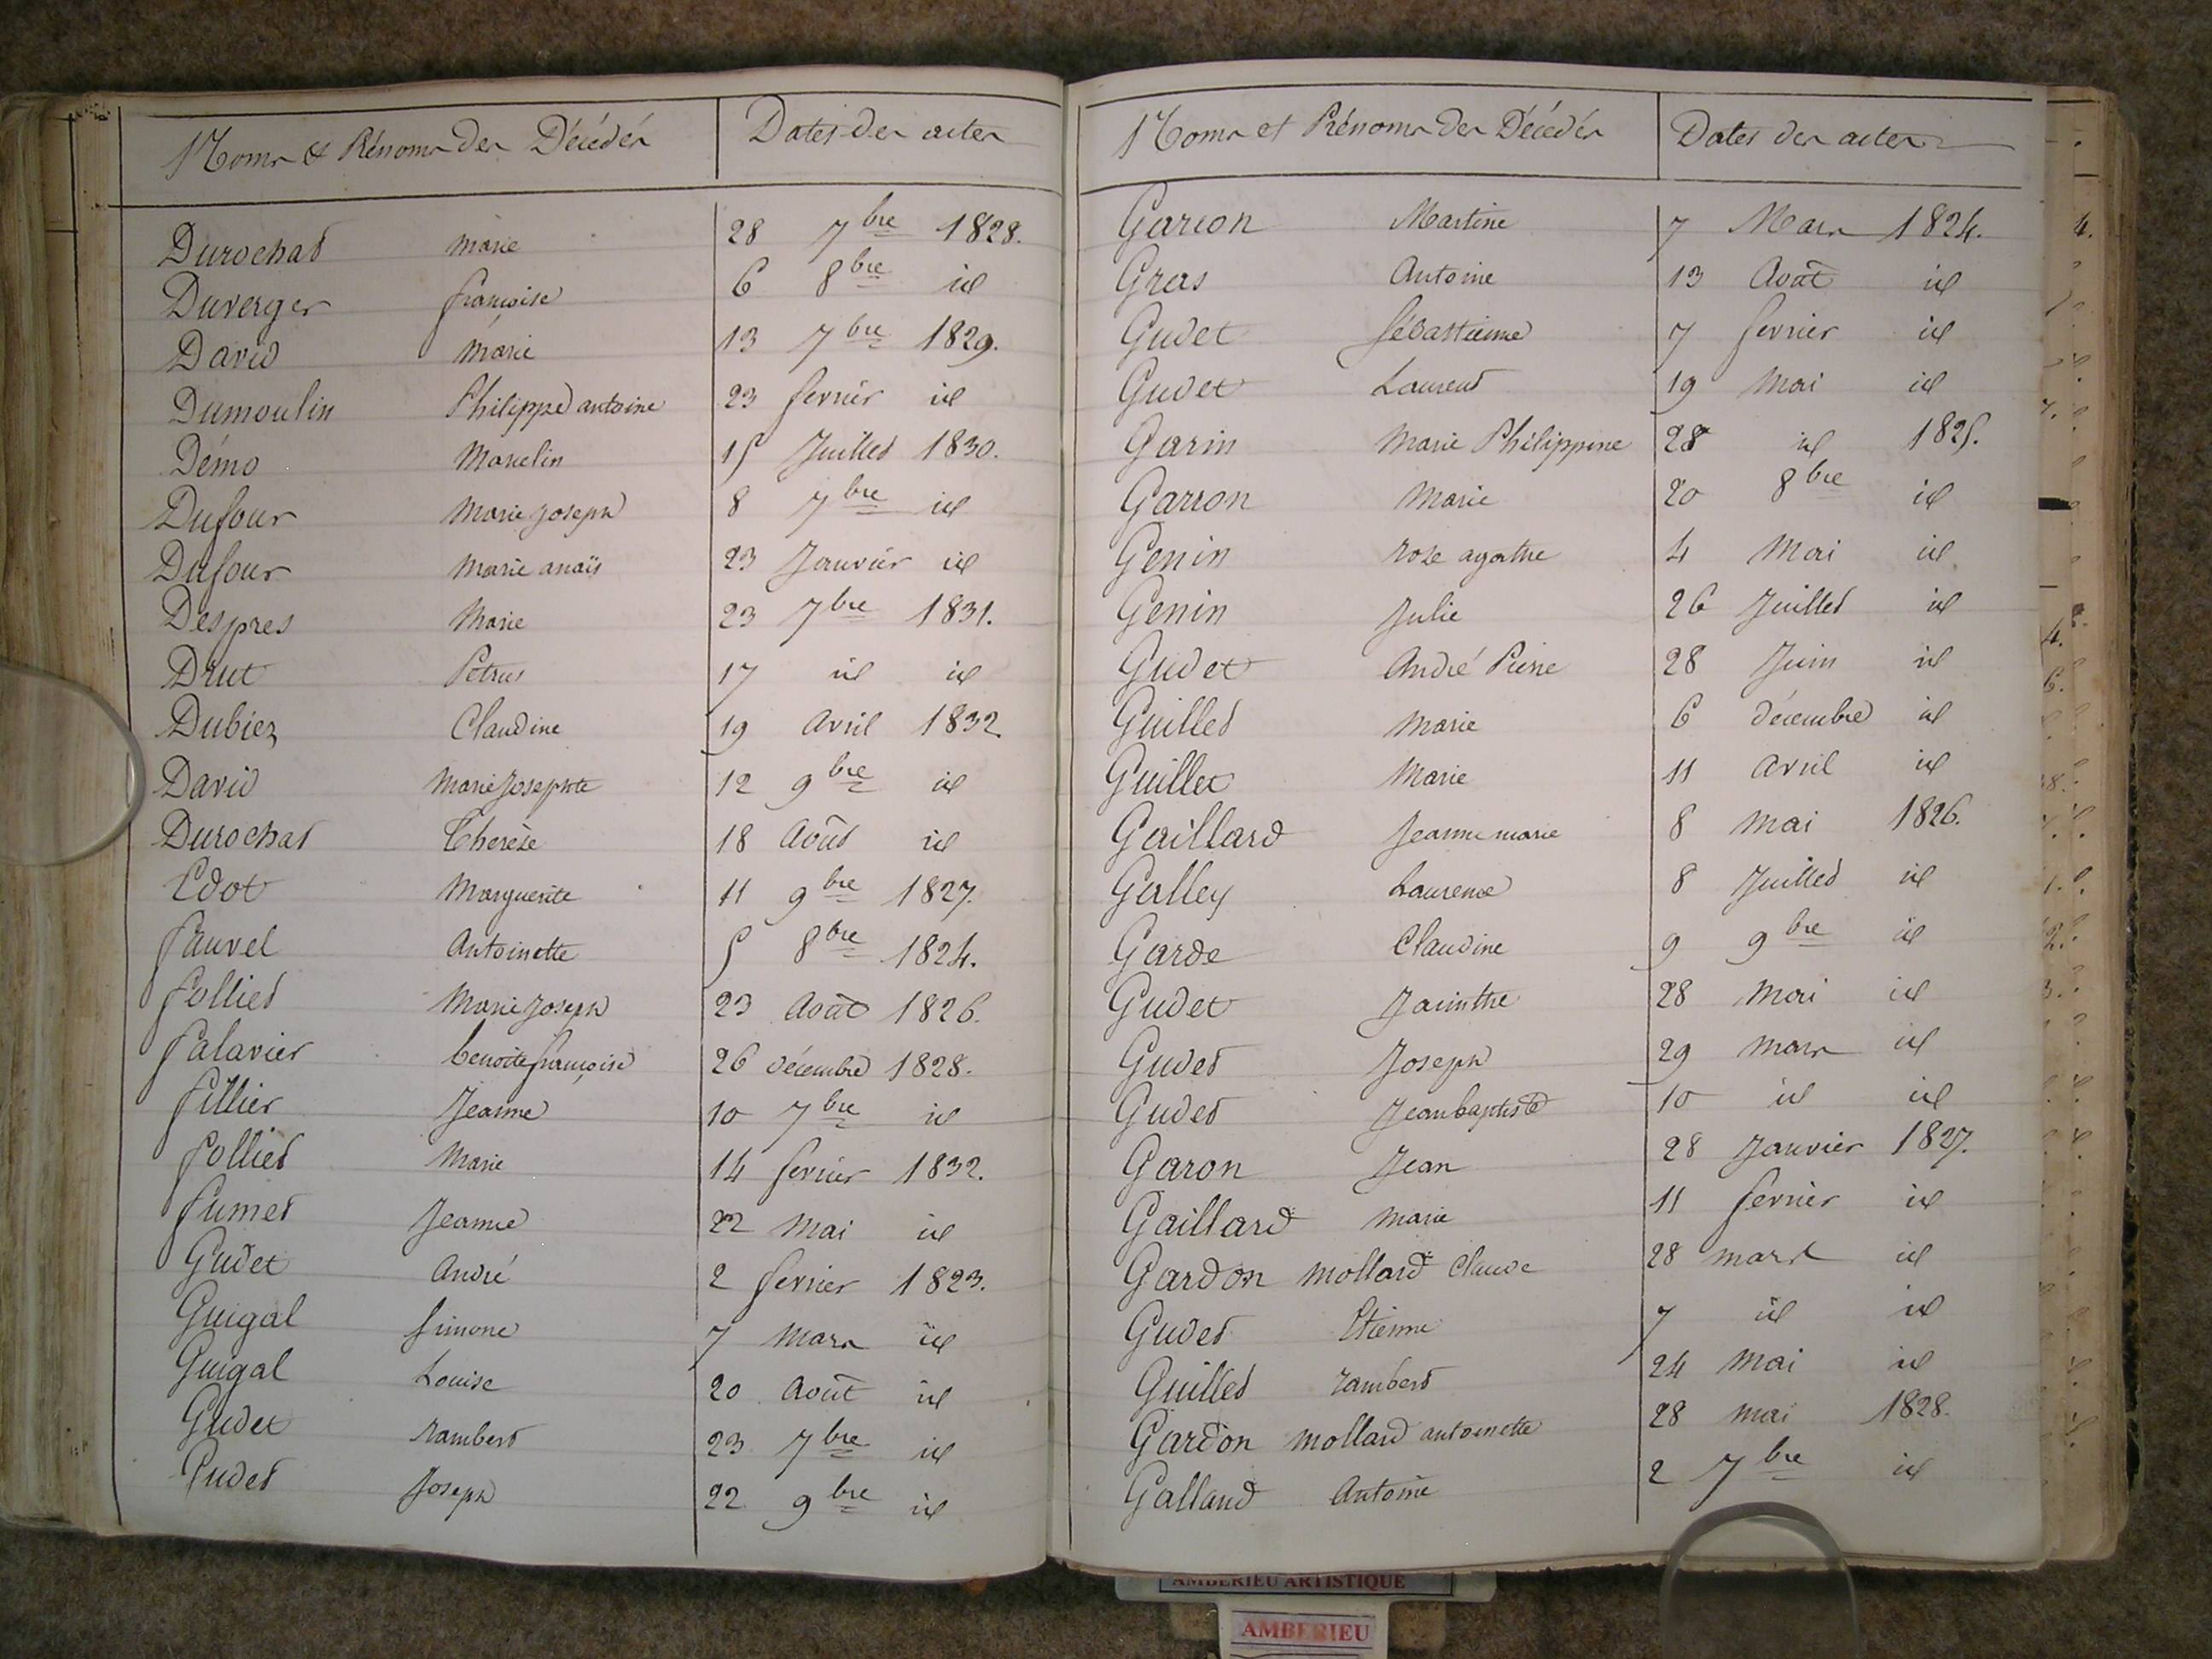 Noms & Prénoms des Décédés Dates des actes
Durochat marie 28 7bre 1828.
Duverger françoise 6 8bre id
David marie 13 7bre 1829.
Dumoulin Philippe antoine 23 fevrier id
Démo Marcelin 15 Juillet 1830.
Dufour Marie Joseph 8 7bre id
Dufour Marie anaïs 23 Janvier id
Despres Marie 23 7bre 1831.
Drut Petrus 17 id id
Dubiez Claudine 19 avril 1832
David Marie Josephte 12 9bre id
Durochat Therèse 18 Août id
Edot Marguerite 11 9bre 1827.
fauvel Antoinette 5 8bre 1824.
folliet Marie Joseph 23 Août 1826.
falavier benoite françoise 26 décembre 1828.
fillier Jeanne 10 7bre id
folliet Marie 14 fevrier 1832.
fumet Jeanne 22 Mai id
Gudet André 2 fevrier 1823.
Guigal Simone 7 Mars id
Guigal Louise 20 Août id
Gudet rambert 23 7bre id
Gudet Joseph 22 9bre id
Noms et Prénoms des Décédés Dates des actes
Garcon Martine 7 Mars 1824.
Gras Antoine 13 Août id
Gudet Sébastienne 7 fevrier id
Gudet Laurent 19 Mai id
Garin Marie Philippine 28 id 1825.
Garron Marie 20 8bre id
Genin rose agathe 4 Mai id
Genin Julie 26 Juillet id
Gudet André Pierre 28 Juin id
Guillet Marie 6 décembre id
Guillet Marie 11 avril id
Gaillard Jeanne marie 8 Mai 1826.
Galley Laurence 8 Juillet id
Garde Claudine 9 9bre id
Gudet Jacinthe 28 Mai id
Gudet Joseph 29 mars id
Gudet Jean baptiste 10 id id
Garon Jean 28 Janvier 1827.
Gaillard Marie 11 fevrier id
Gardon mollard Claude 28 mars id
Gudet Etienne 7 id id
Guillet rambert 24 Mai id
Gardon mollard antoinette 28 mai 1828.
Galland Antoine 2 7bre id
AMBERIEU ARTISTIQUE
AMBERIEU